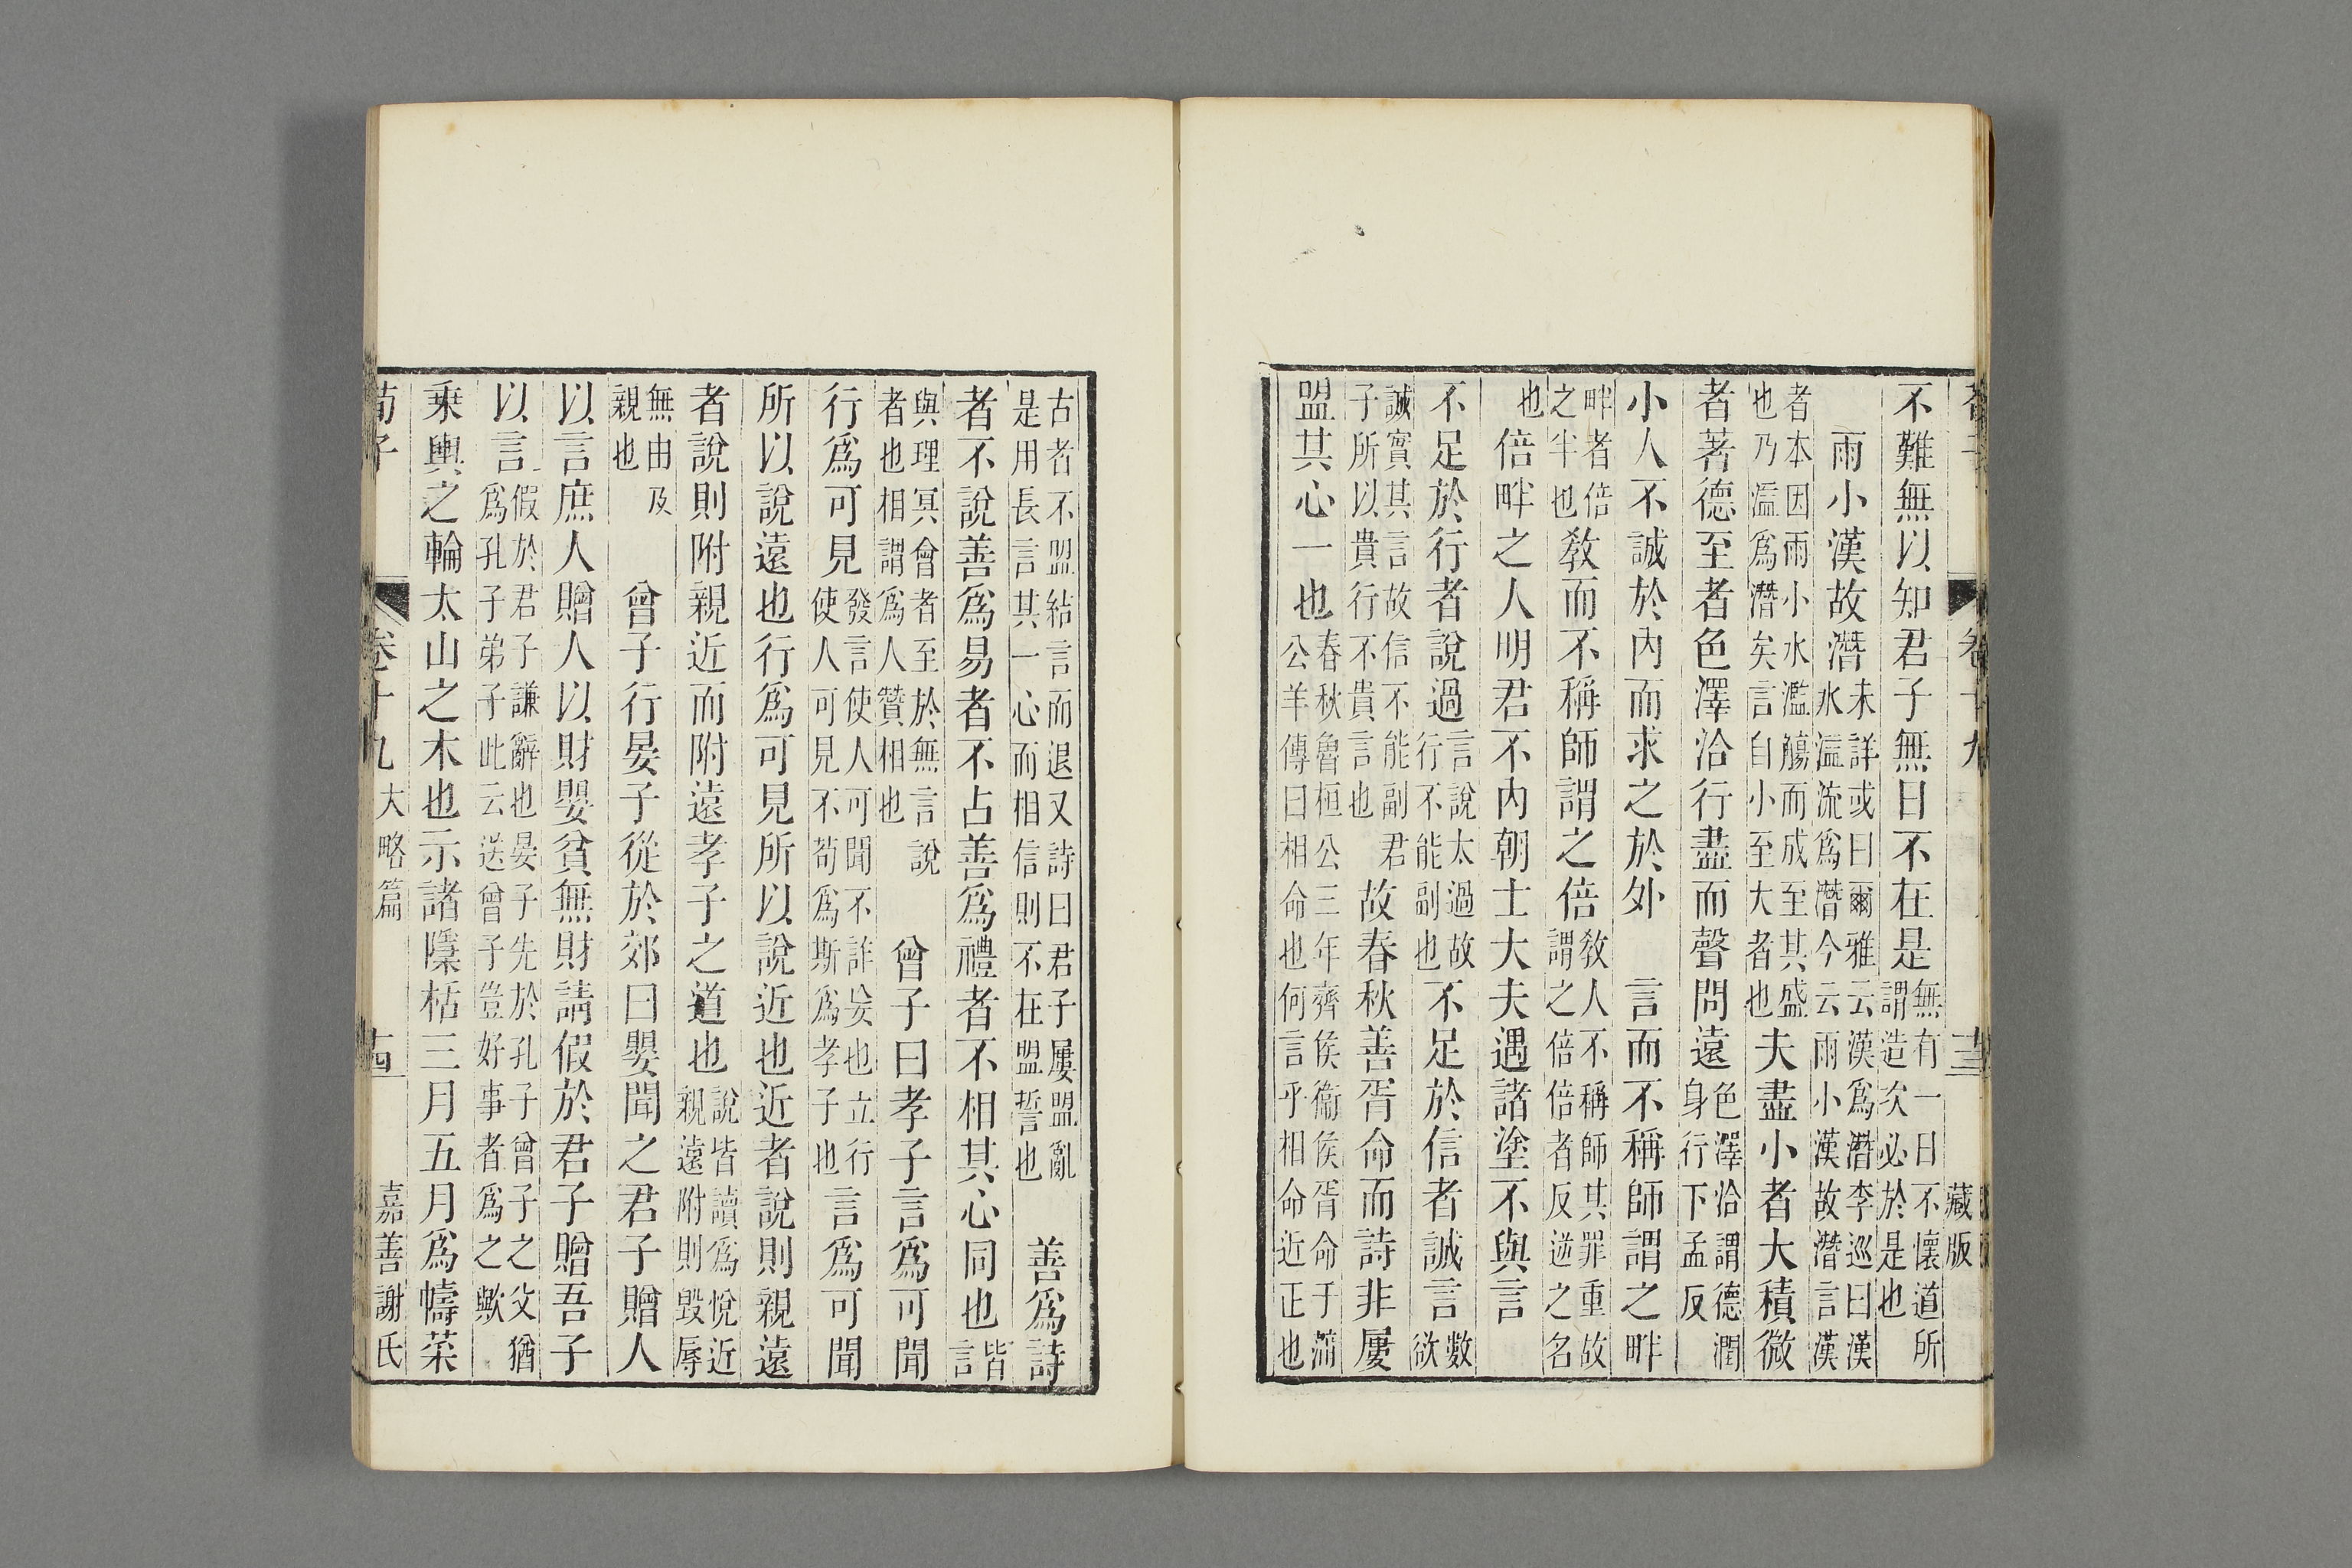 荀子　卷十九　十三　藏版
不難無以知君子無日不在是無有一日不懷道所謂造次必於是也
雨小漢故潛未詳或曰爾雅云漢爲潛李巡曰漢水溢流爲潛今云雨小漢故潛言漢
者本因雨小水濫觴而成至其盛也乃溢爲潛矣言自小至大者也夫盡小者大積微
者著德至者色澤洽行盡而聲問遠色澤洽謂德潤身行下孟反
小人不誠於內而求之於外　言而不稱師謂之畔
畔者倍之半也教而不稱師謂之倍教人不稱師其罪重故謂之倍倍者反逆之名
也倍畔之人明君不內朝士大夫遇諸塗不與言
不足於行者說過言說太過故行不能副也不足於信者誠言數欲
誠實其言故信不能副君子所以貴行不貴言也故春秋善胥命而詩非屢
盟其心一也春秋魯桓公三年齊侯衞侯胥命于蒲公羊傳曰相命也何言乎相命近正也
古者不盟結言而退又詩曰君子屢盟亂是用長言其一心而相信則不在盟誓也　善爲詩
者不說善爲易者不占善爲禮者不相其心同也皆言
與理冥會者至於無言說者也相謂爲人贊相也　曾子曰孝子言爲可聞
行爲可見發言使人可聞不詐妄也立行使人可見不苟爲斯爲孝子也言爲可聞
所以說遠也行爲可見所以說近也近者說則親遠
者說則附親近而附遠孝子之道也說皆讀爲悅近親遠附則毀辱
無由及親也　曾子行晏子從於郊曰嬰聞之君子贈人
以言庶人贈人以財嬰貧無財請假於君子贈吾子
以言假於君子謙辭也晏子先於孔子曾子之父猶爲孔子弟子此云送曾子豈好事者爲之歟
乘輿之輪太山之木也示諸隱栝三月五月爲幬菜
荀子　卷十九　大略篇　十四　嘉善謝氏